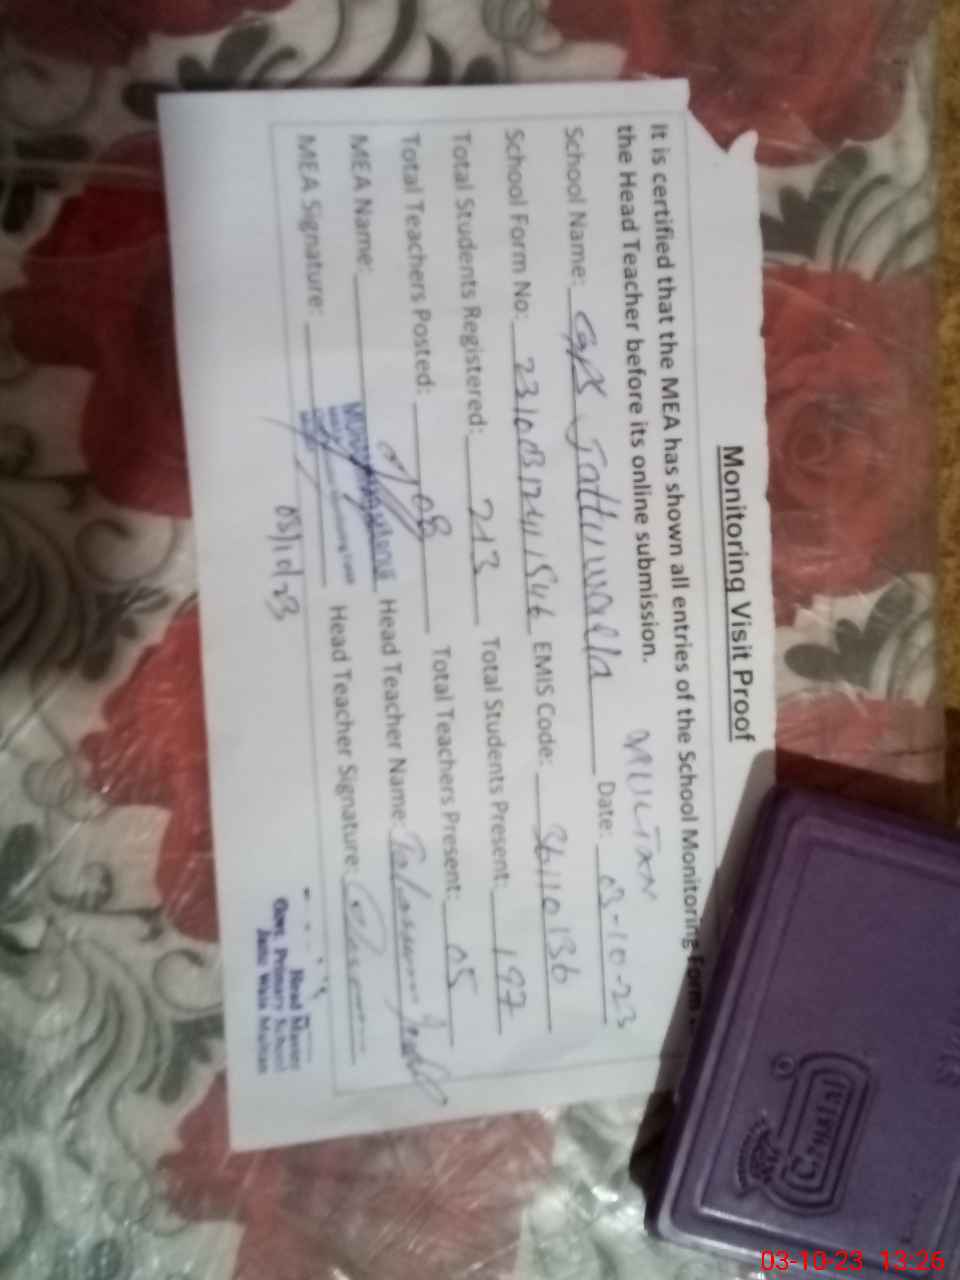 Monitoring Visit Proof
It is certified that the MEA has shown all entries of the School Monitoring Form
the Head Teacher before its online submission. MULTAN
School Name: GPS Jattu walla Date: 03-10-23
School Form No: EMIS Code: 36110136
Total Students Registered: 213 Total Students Present: 197
Total Teachers Posted: 08 Total Teachers Present: 05
MEA Name: Head Teacher Name:
MEA Signature: Head Teacher Signature:
03/10/23
Head Master
Govt. Primary School
Multan
03-10-23 13:26